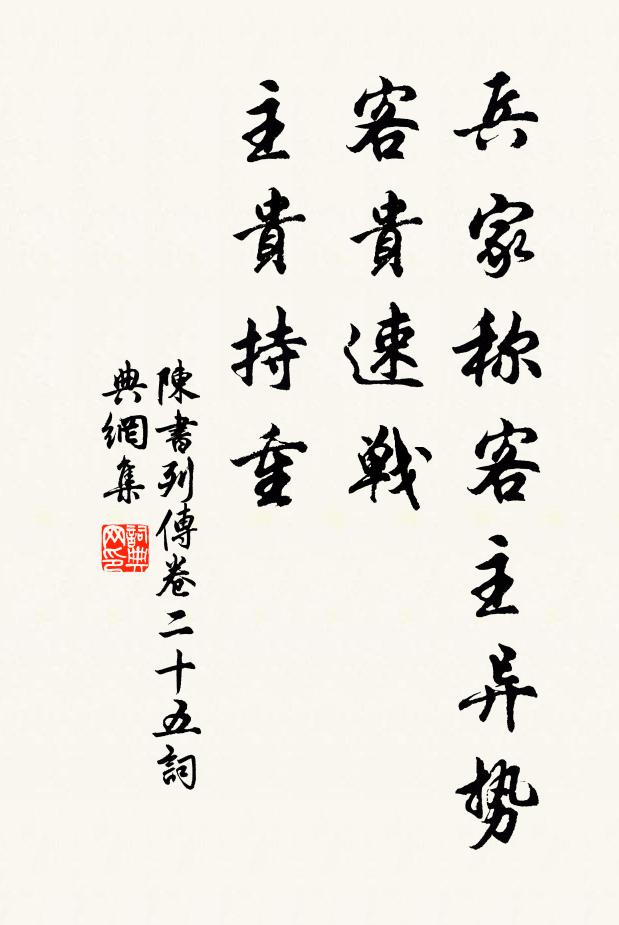 兵家称客主异势
客貴速戦
主貴持重
陳書列傳卷二十五詞
典網集
詞典網印